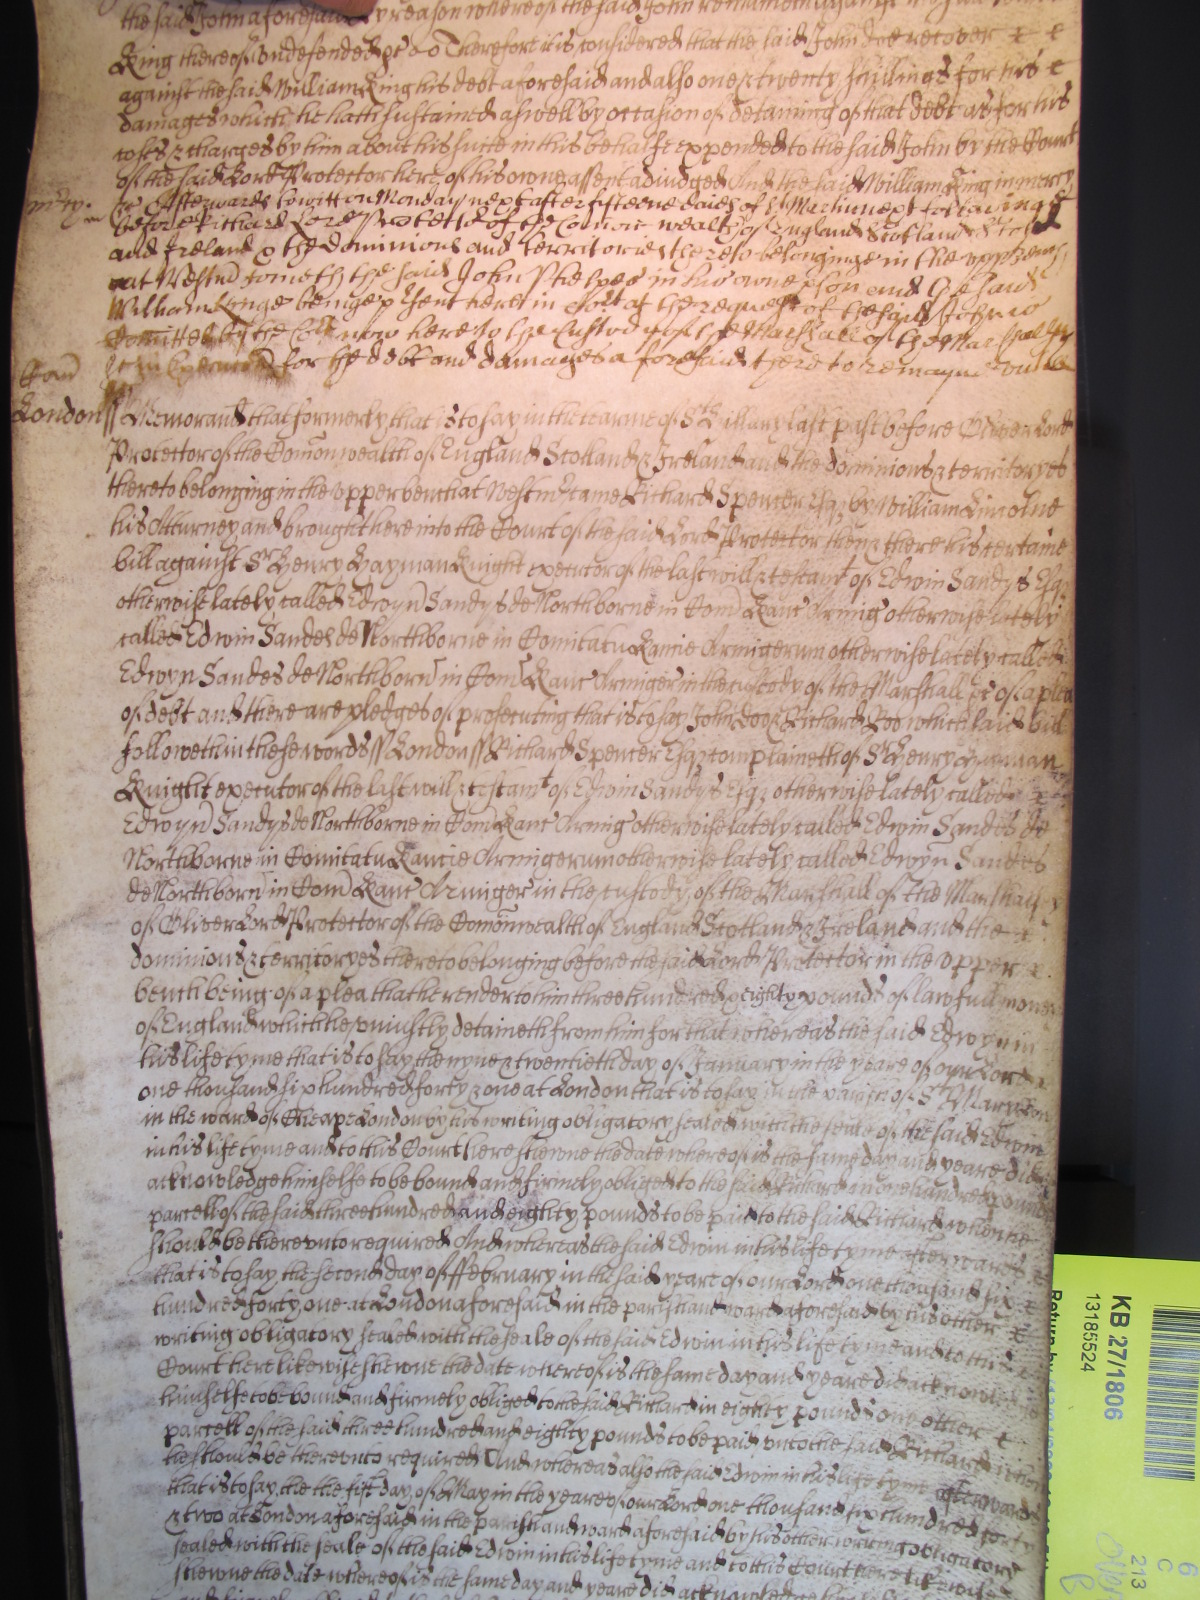 the said John aforesaid by reason whereof the said John remaineth against the said William
King thereof undefended &c Therefore it is considered that the said John doe recover
against the said William King his debt aforesaid and also one & twenty shillings for his
damages which he hath susteined aswell by occasion of detaining of that debt as for his
costs & charges by him about his suite in this behalfe expended to the said John by the Court
of the said Lord Protector here of his owne assent adiudged And the said William King in mercy
&c Afterwards to witt on Monday next after fifteene daies of St Martin next following
before Richard Lord Protector of the Comon wealth of England Scotland
and Ireland & the dominions and territories thereto belonginge in the upper bench
at Westmr cometh the said John in his owne pson and the said
William Kinge beinge psent here in Court att the request of the said John is
Comitted by the Court now here to the custody of the Marshall of the Marshalsey
for the debt and damages aforesaid there to remayne untill
London ss Memorand that formerly that is to say in the tearme of St Hillary last past before Oliver Lord
Protector of the Comonwealth of England Scotland & Ireland and the dominions & territoryes
thereto belonging in the upper bench at Westmr came Richard Spencer Esqr by William
his Atturney and brought here into the Court of the said Lord Protector then & there his certaine
bill against Sr Henry Hayman Knight executor of the last will & testamt of Edwin Sandys Esqr
otherwise lately called Edwyn Sandys de Northborne in Com Kanc Armig otherwise lately
called Edwin Sandes de Northborne in Comitatu Kancie Armigerum otherwise lately called
Edwyn Sandes de Northborn in Com Kanc Armiger in the custody of the Marshall &c of a plea
of debt and there are pledges of prosecuting that is to say John Doo & Richard Roo which said bill
followeth in these words ss London ss Richard Spencer Esqr complaineth of Sr Henry Hayman
Knight executor of the last will & testamt of Edwin Sandys Esqr otherwise lately called
Edwyn Sandys de Northborne in Com Kanc Armig otherwise lately called Edwin Sandes de
Northborne in Comitatu Kancie Armigerum otherwise lately called Edwyn Sandes
de Northborn in Com Kanc Armiger in the custody of the Marshall of the Marshalsey
of Oliver Lord Protector of the Comonwealth of England Scotland & Ireland and the
dominions & territoryes thereto belonging before the said Lord Protector in the upper
bench being of a plea that he render to him three hundred & eighty pounds of lawfull money
of England which he uniustly detaineth from him for that whereas the said Edwyn in
his life tyme that is to say the nyne & twentieth day of January in the yeare of our Lord
one thousand six hundred forty & one at London that is to say in the parish of St Mary
in the ward of Cheape London by his writing obligatory sealed with the seale of the said Edwin
in his life tyme and to this Court here shewne the date whereof is the same day and yeare did
acknowledge himselfe to be bound and firmely obliged to the said Richard in one hundred pounds
parcell of the said three hundred and eighty pounds to be paid to the said Richard when he
should be thereunto required And whereas the said Edwin in his life tyme afterwards
that is to say the second day of ffebruary in the said yeare of our Lord one thousand six
hundred forty one at London aforesaid in the parish and ward aforesaid by his other
writing obligatory sealed with the seale of the said Edwin in his life tyme and to this
Court here likewise shewne the date whereof is the same day and yeare did acknowledge
himselfe to be bound and firmely obliged to the said Richard in eighty pounds one other
parcell of the said three hundred and eighty pounds to be paid unto the said Richard when
he should be thereunto required And whereas also the said Edwin in his life tyme afterwards
that is to say the the first day of May in the yeare of our Lord one thousand six hundred forty
& two at London aforesaid in the parish and ward aforesaid by his other writing obligatory
sealed with the seale of the said Edwin in his life tyme and to this Court here likewise
shewne the date whereof is the same day and yeare did acknowledge
KB 27/1806
13185524
Return by
213
C
6